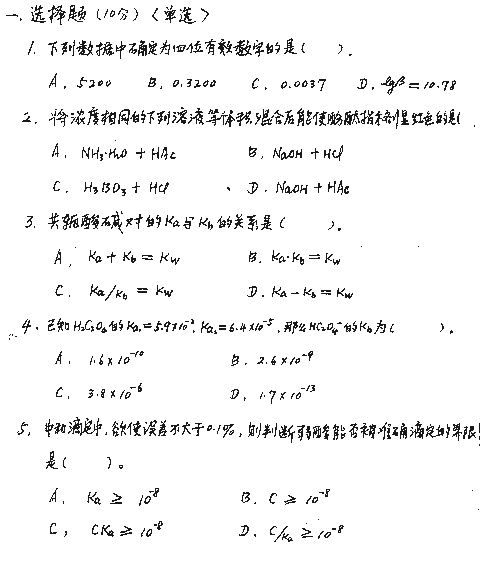 一、选择题（10分）〈单选〉
1. 下列数据中确定为四位有效数字的是（ ）.
A. 5200 B. 0.3200 C. 0.0037 D. lgβ=10.78
2. 将浓度相同的下列溶液等体积混合后能使酚酞指示剂呈红色的是（
A. NH₃·H₂O + HAc B. NaOH + HCl
C. H₃BO₃ + HCl D. NaOH + HAc
3. 共轭酸碱对的Ka与Kb的关系是（ ）.
A. Ka + Kb = Kw B. Ka·Kb = Kw
C. Ka/Kb = Kw D. Ka - Kb = Kw
4. 已知H₂C₂O₄的Ka₁=5.9×10⁻², Ka₂=6.4×10⁻⁵, 那么HC₂O₄⁻的Kb为（ ）.
A. 1.6×10⁻¹⁰ B. 2.6×10⁻⁹
C. 3.8×10⁻⁶ D. 1.7×10⁻¹³
5. 中和滴定中,欲使误差不大于0.1%,则判断弱酸能否被准确滴定的界限
是（ ）。
A. Ka ≥ 10⁻⁸ B. C ≥ 10⁻⁸
C, CKa ≥ 10⁻⁸ D. C/Ka ≥ 10⁻⁸